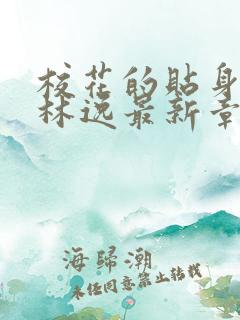 校花的贴身
林逸最新章
海归潮
未经同意禁止转载